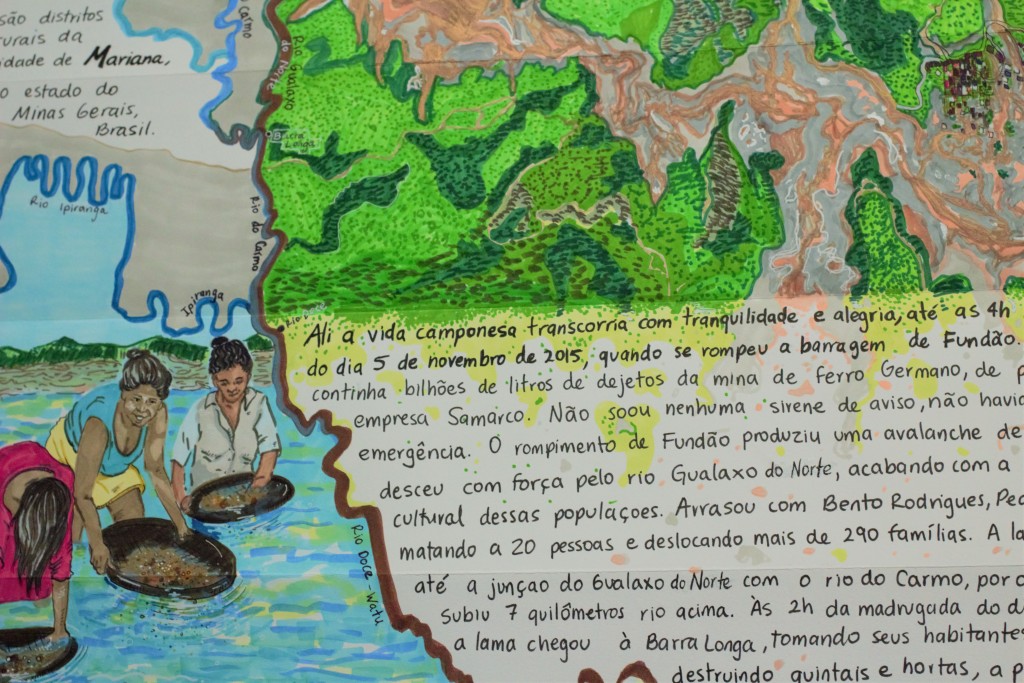 são distritos
rurais da
idade de Mariana,
o estado do
Minas Gerais,
Brasil.
Carmo
Rio Gualaxo do Norte
Barra Longa
Rio Ipiranga
Rio do Carmo
Ipiranga
Rio Doce
Ali a vida camponesa transcorria com tranquilidade e alegria, até as 4h
do dia 5 de novembro de 2015, quando se rompeu a barragem de Fundão.
continha bilhões de litros de dejetos da mina de ferro Germano, de p
empresa Samarco. Não soou nenhuma sirene de aviso, não havia
emergência. O rompimento de Fundão produziu uma avalanche de
desceu com força pelo rio Gualaxo do Norte, acabando com a
cultural dessas populaçoes. Arrasou com Bento Rodrigues, Ped
matando a 20 pessoas e deslocando mais de 290 famílias. A la
até a junçao do Gualaxo do Norte com o rio do Carmo, por o
subiu 7 quilômetros rio acima. Às 2h da madrugada do d
a lama chegou à Barra Longa, tomando seus habitantes
destruindo quintais e hortas, a p
Rio Doce - Watu